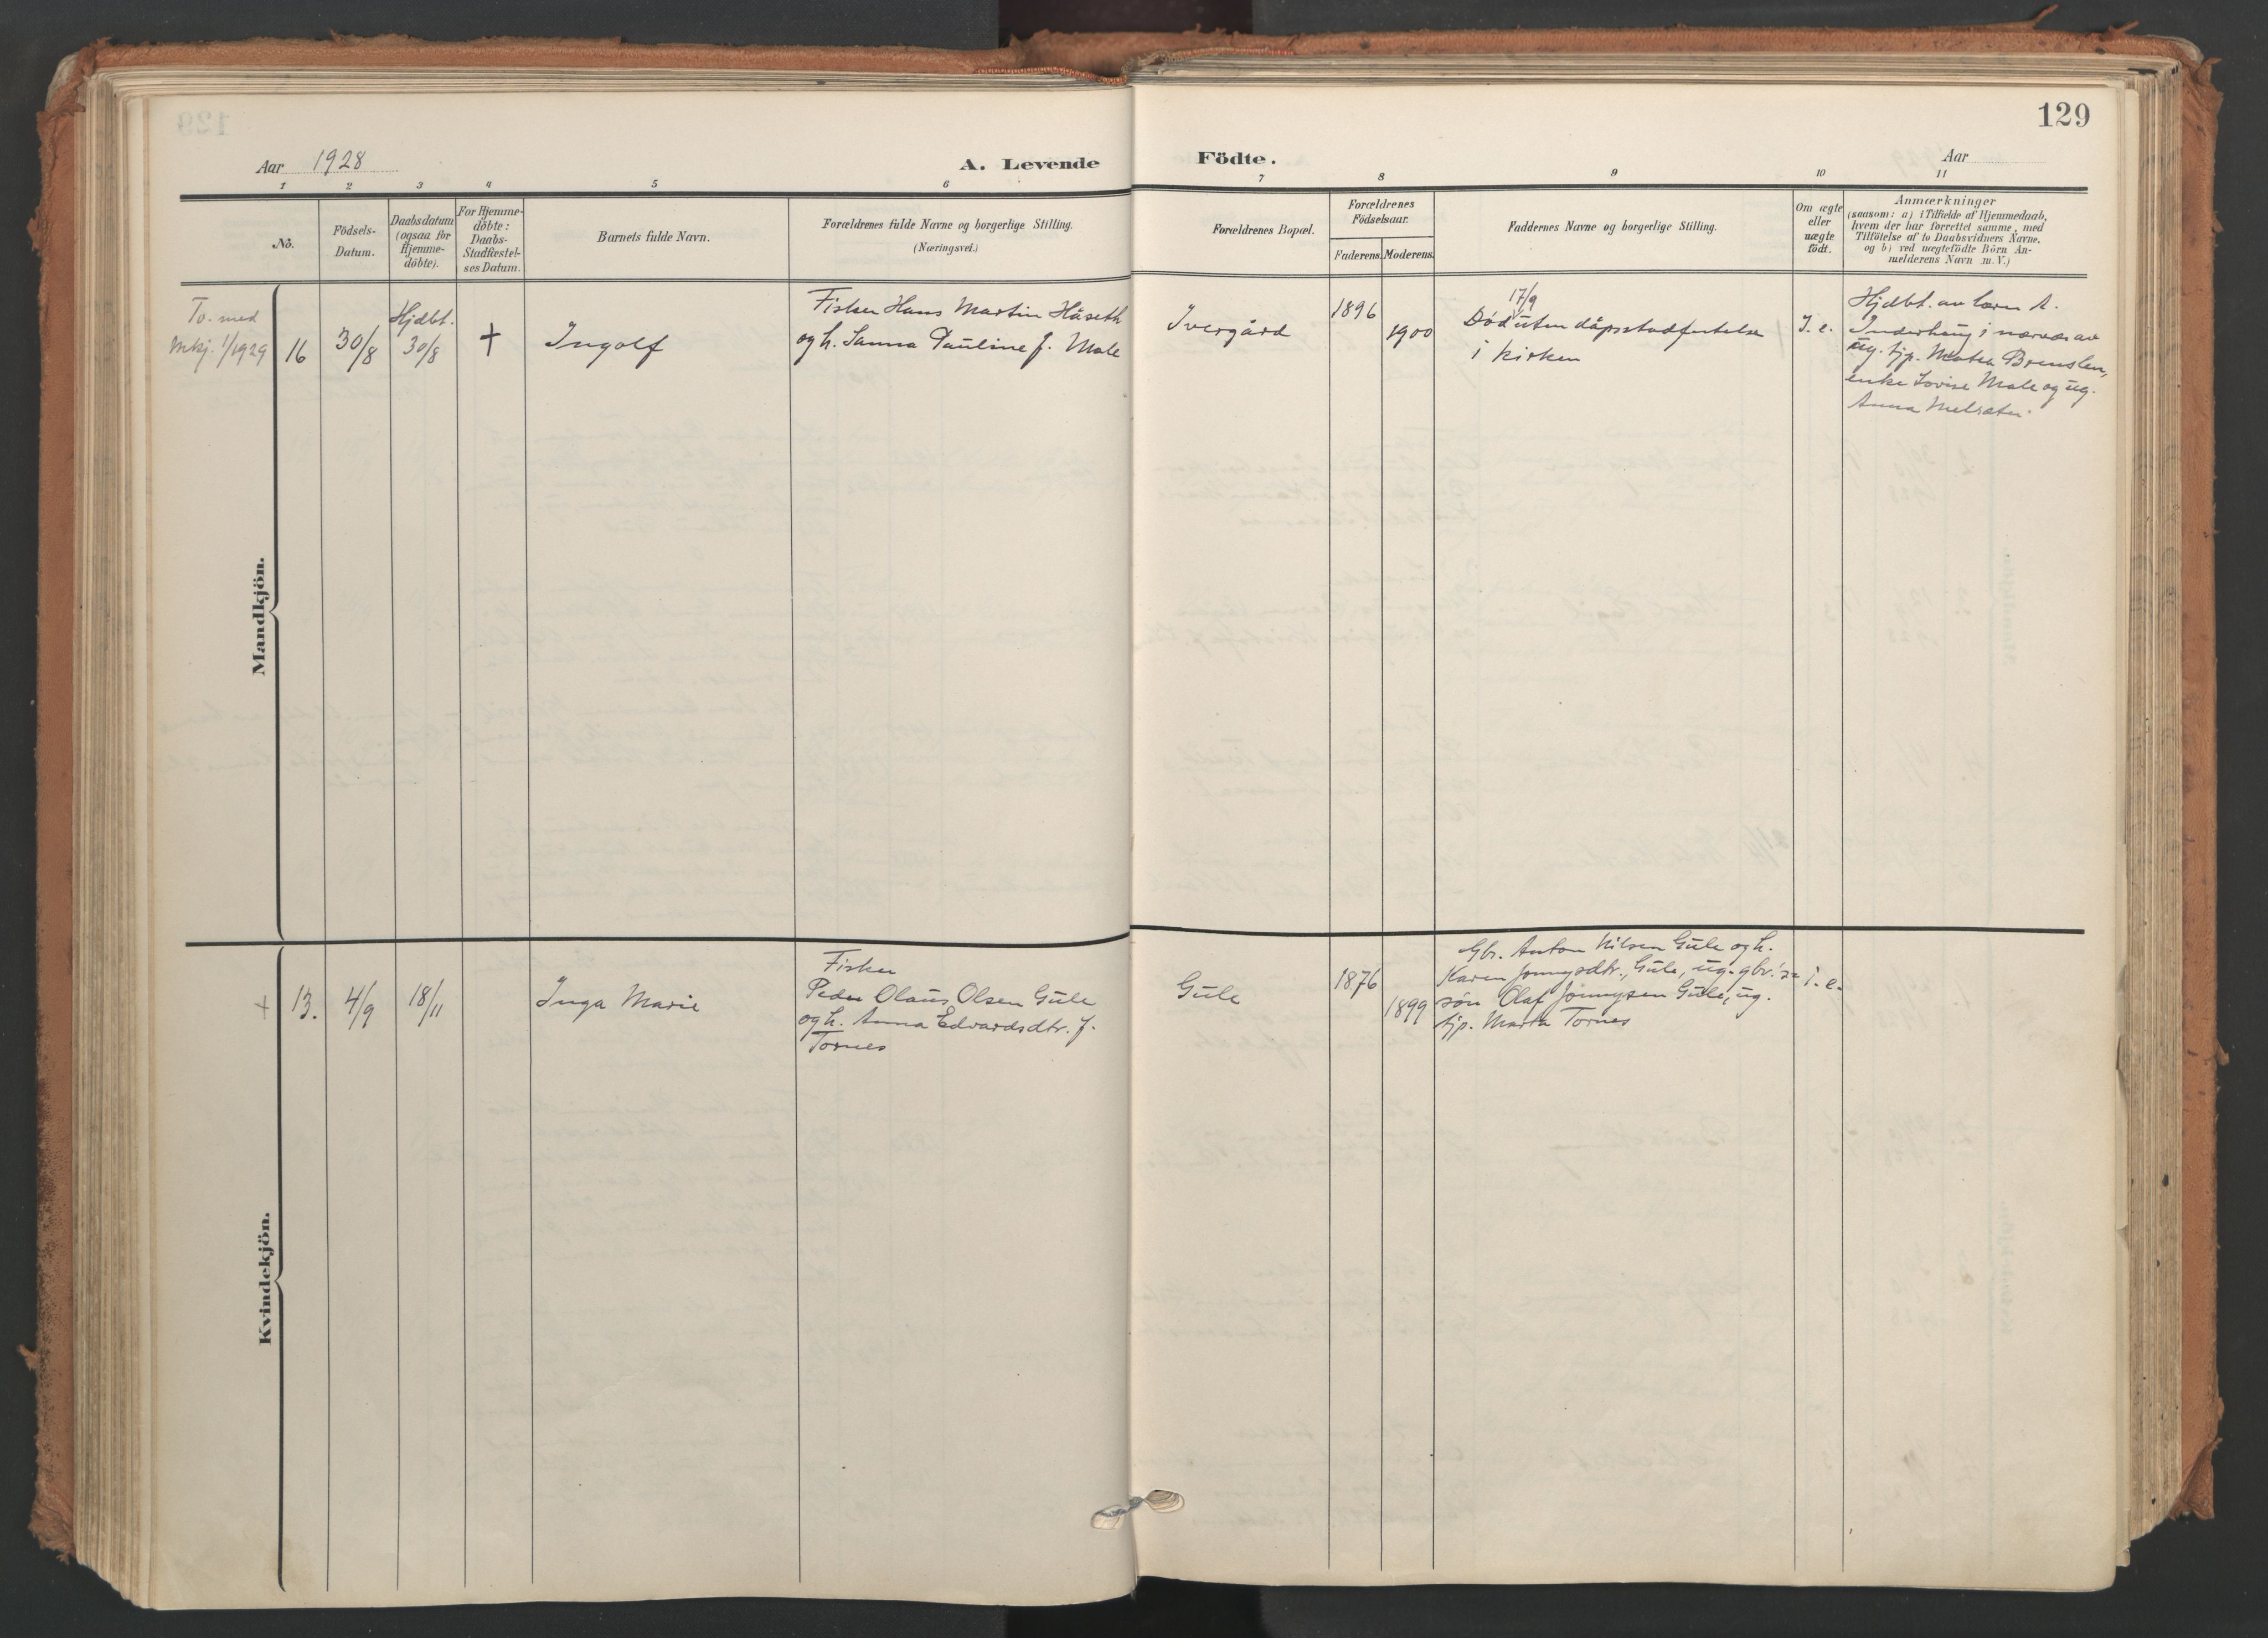 129
Aar 1928
A. Levende Födte.
Aar
1 2 3 4 5 6 7 8 9 10 11
Nô.
Födsels-
Datum.
Daabsdatum
(ogsaa for
Hjemme-
döbte).
For Hjemme-
döbte:
Daabs-
Stadfæstel-
ses Datum.
Barnets fulde Navn.
Forældrenes fulde Navne og borgerlige Stilling.
(Næringsvei.)
Forældrenes Bopæl.
Forældrenes
Födselsaar.
Faderens.
Moderens.
Faddernes Navne og borgerlige Stilling.
Om ægte
eller
uægte
födt.
Anmærkninger
(saasom: a) i Tilfælde af Hjemmedaab,
hvem der har forrettet samme, med
Tilföielse af to Daabsvidners Navne,
og b) ved uægtefödte Börn An-
melderens Navn m. V.)
Mandkjön.
To. med
1/1929
16
30/8
Hjdbt.
30/8
+
Ingolf
Fisker Hans Martin Håseth
og h. Sanna Pauline f. Male
Ivergård
1896
1900
17/9
Död uten dåpsstadfestelse
i kirken
I. e.
Hjdbt. av A.
Inderhaug i nærvær av
ug. tjp. Brenslen,
enke Lovise Male og ug.
Anna Melsæter.
Kvindekjön.
+
13.
4/9
18/11
Inga Marie
Fisker
Peder Olaus Olsen Gule
og h. Anna Edvardsdtr. f.
Tornes
Gule
1876
1899
Gbr. Anton Nilsen Gule og h.
Karen Gule, ug. gbr.
sön Olaf Gule, ug.
tjp. Marta Tornes
I. e.